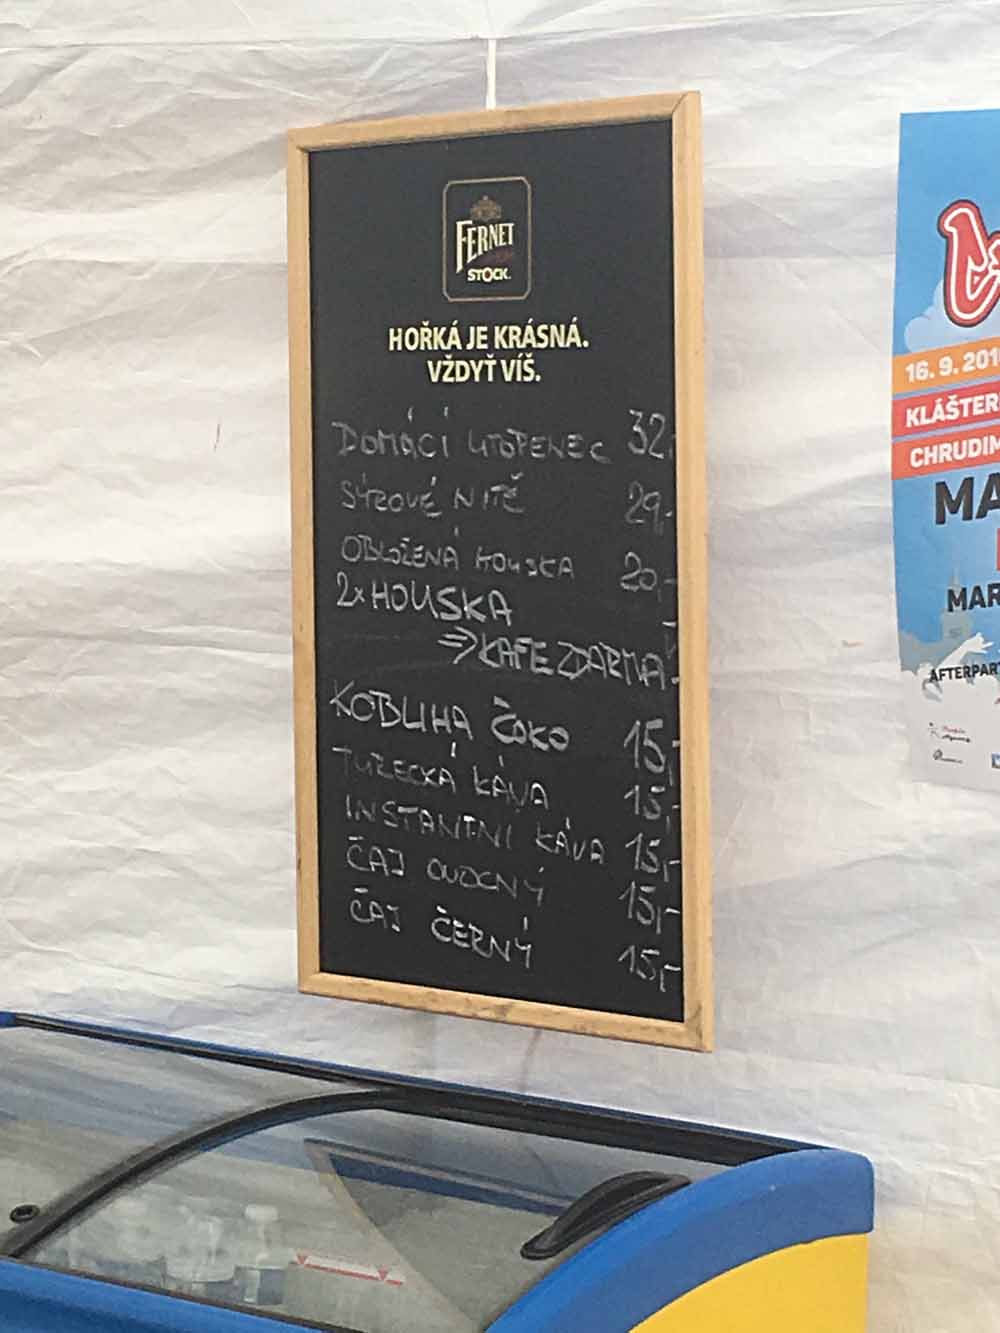 FERNET
STOCK.
HOŘKÁ JE KRÁSNÁ.
VŽDYŤ VÍŠ.
DOMÁCÍ UTOPENEC 32,-
SÝROVÉ NITĚ 29,-
OBLOŽENÁ HOUSKA 20,-
2x HOUSKA
⇒ KAFE ZDARMA
KOBLIHA ČOKO 15,-
TURECKÁ KÁVA 15,-
INSTANTNÍ KÁVA 15,-
ČAJ OVOCNÝ 15,-
ČAJ ČERNÝ 15,-
16. 9. 201
KLÁŠTER
CHRUDIM
MA
MAR
AFTERPAR